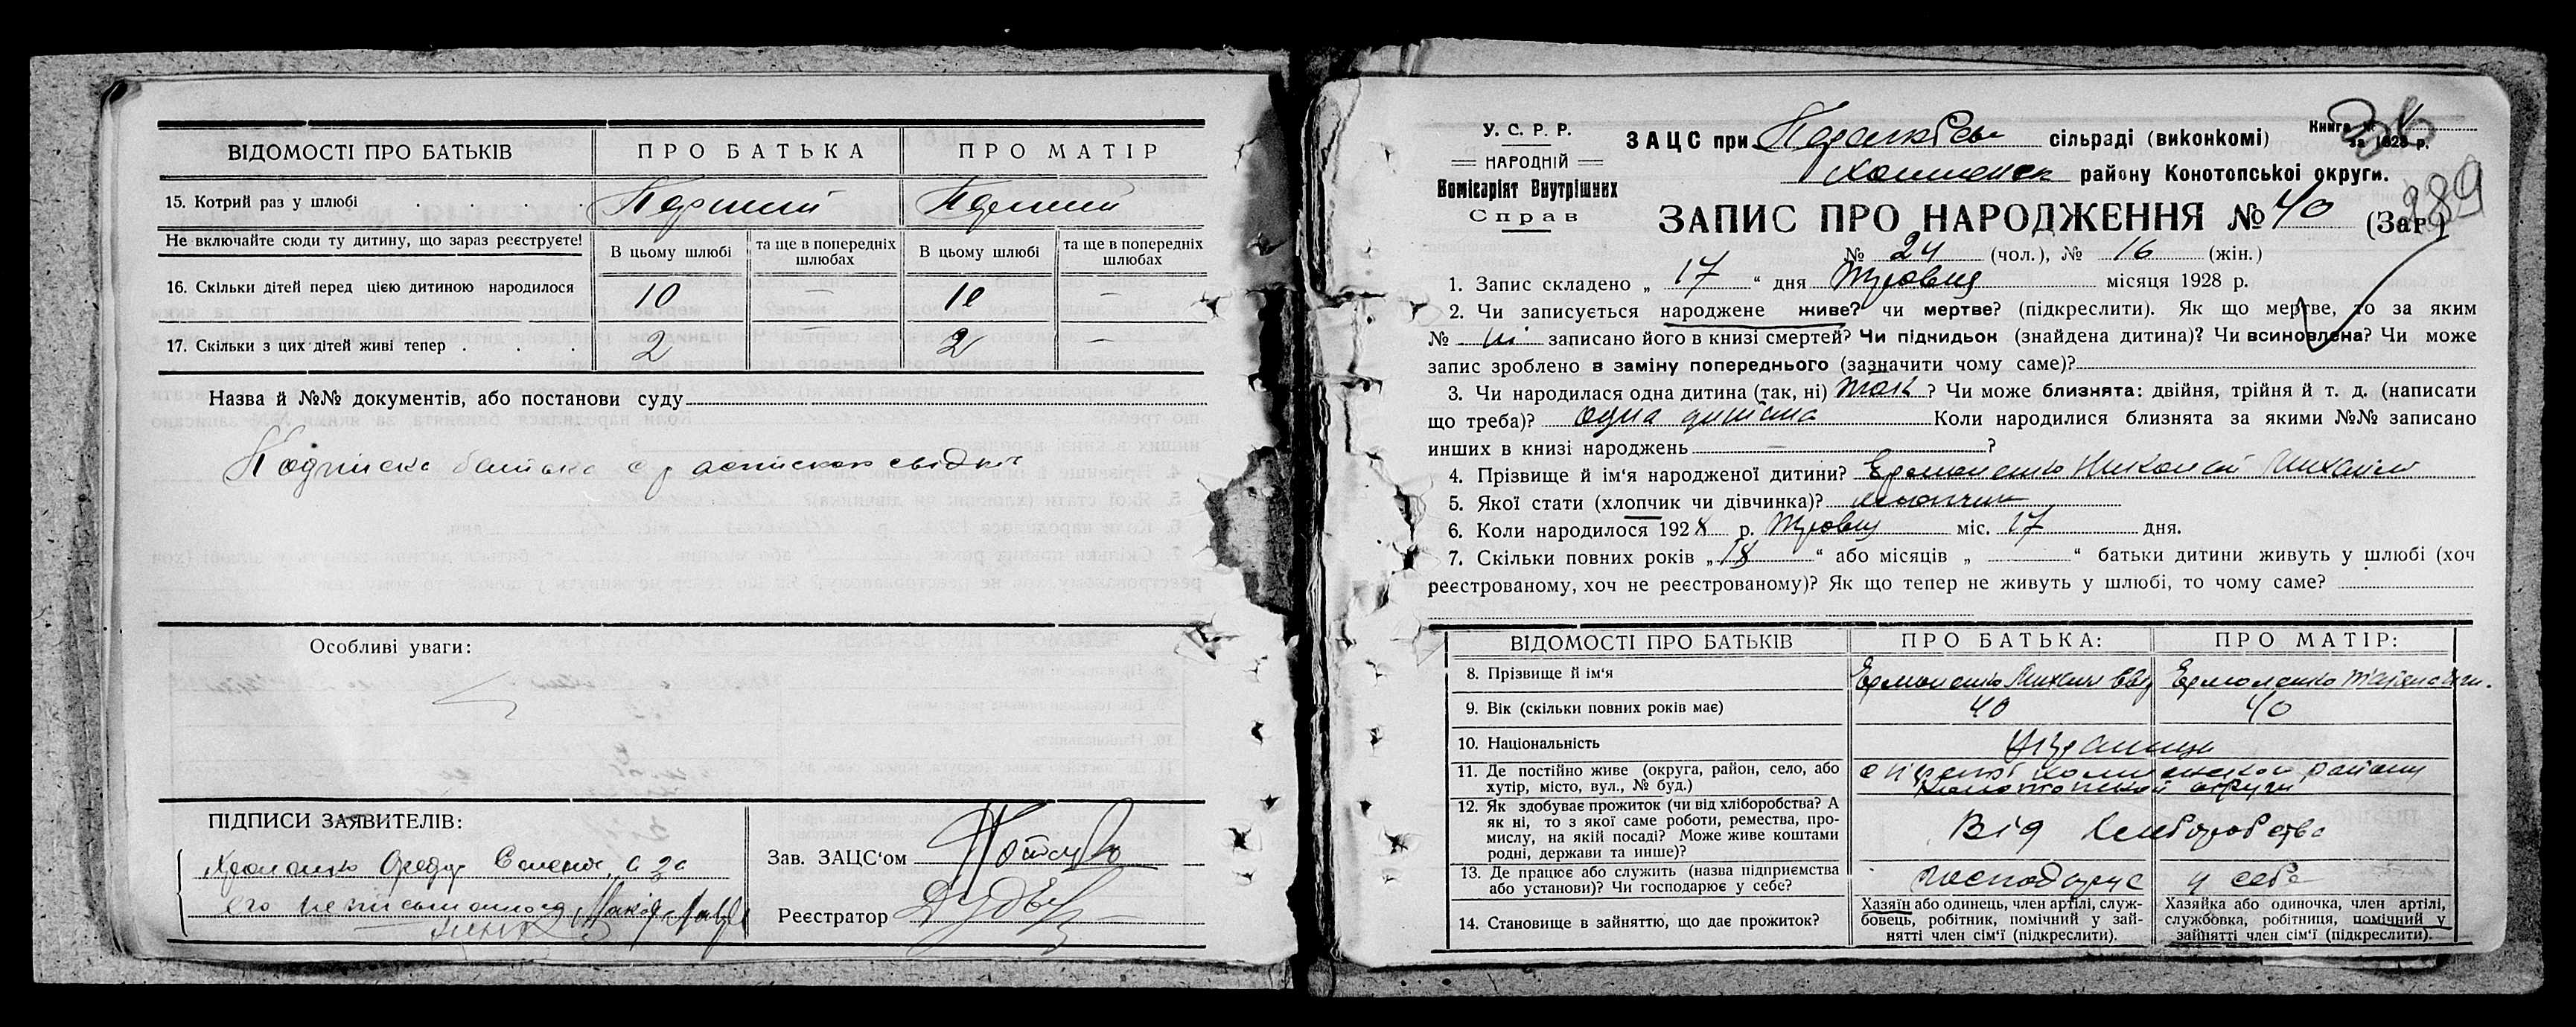 ВІДОМОСТІ ПРО БАТЬКІВ
ПРО БАТЬКА
ПРО МАТІР
15. Котрий раз у шлюбі
Перший
Перший
Не включайте сюди ту дитину, що зараз реєструєте!
В цьому шлюбі
та ще в попередніх шлюбах
В цьому шлюбі
та ще в попередніх шлюбах
16. Скільки дітей перед цією дитиною народилося
10
—
10
—
17. Скільки з цих дітей живі тепер
2
—
2
—
Назва й №№ документів, або постанови суду
Подписка батька
Особливі уваги:
ПІДПИСИ ЗАЯВИТЕЛІВ:
Зав. ЗАЦС'ом
Реєстратор
У. С. Р. Р.
НАРОДНІЙ
Комісаріят Внутрішних
Справ
ЗАЦС при сільраді (виконкомі)
Книга №
за 1928 р.
району Конотопської округи.
289
ЗАПИС ПРО НАРОДЖЕННЯ № 40 (Заг.)
№ 24 (чол.), № 16 (жін.)
1. Запис складено „ 17 “ дня Травця місяця 1928 р.
2. Чи записується народжене живе? чи мертве? (підкреслити). Як що мертве, то за яким
№ ні записано його в книзі смертей? Чи підкидьок (знайдена дитина)? Чи всиновлена? Чи може
запис зроблено в заміну попереднього (зазначити чому саме)?
3. Чи народилася одна дитина (так, ні) так ? Чи може близнята: двійня, трійня й т. д. (написати
що треба)? одна дитина Коли народилися близнята за якими №№ записано
инших в книзі народжень — ?
4. Прізвище й ім'я народженої дитини? Ермоленко Николай Михайл
5. Якої стати (хлопчик чи дівчинка)? хлопчик
6. Коли народилося 1928 р. Травця міс. 17 дня.
7. Скільки повних років „ 18 “ або місяців „ “ батьки дитини живуть у шлюбі (хоч
реєстрованому, хоч не реєстрованому)? Як що тепер не живуть у шлюбі, то чому саме?
ВІДОМОСТІ ПРО БАТЬКІВ
ПРО БАТЬКА:
ПРО МАТІР:
8. Прізвище й ім'я
Ермоленко Михаил
Ермоленко Татяна
9. Вік (скільки повних років має)
40
40
10. Національність
Українці
11. Де постійно живе (округа, район, село, або
хутір, місто, вул., № буд.)
району
Конотопской округи
12. Як здобуває прожиток (чи від хліборобства? А
як ні, то з якої саме роботи, ремества, про-
мислу, на якій посаді? Може живе коштами
родні, держави та инше)?
Від хлеборобства
13. Де працює або служить (назва підприємства
або установи)? Чи господарює у себе?
господарує у себе
14. Становище в зайняттю, що дає прожиток?
Хазяїн або одинець, член артілі, служ-
бовець, робітник, помічний у зай-
нятті член сім'ї (підкреслити).
Хазяйка або одиночка, член артілі,
службовка, робітниця, помічний у
зайнятті член сім'ї (підкреслити).